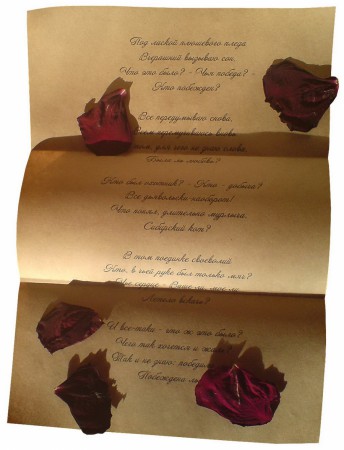 Под лаской плюшевого пледа
Вчерашний вызываю сон.
Что это было? - Чья победа? -
Кто побежден?
Все передумываю снова,
Всем перемучиваюсь вновь.
том, для чего не знаю слова,
Была ль любовь?
Кто был охотник? - Кто - добыча?
Все дьявольски наоборот!
Что понял, длительно мурлыча,
Сибирский кот?
В том поединке своеволий
Кто, в чьей руке был только мяч?
Чье сердце - Ваше ли, мое ли
Летело вскачь?
И все-таки - что ж это было?
Чего так хочется и жаль?
Так и не знаю: победила
Побеждена ль